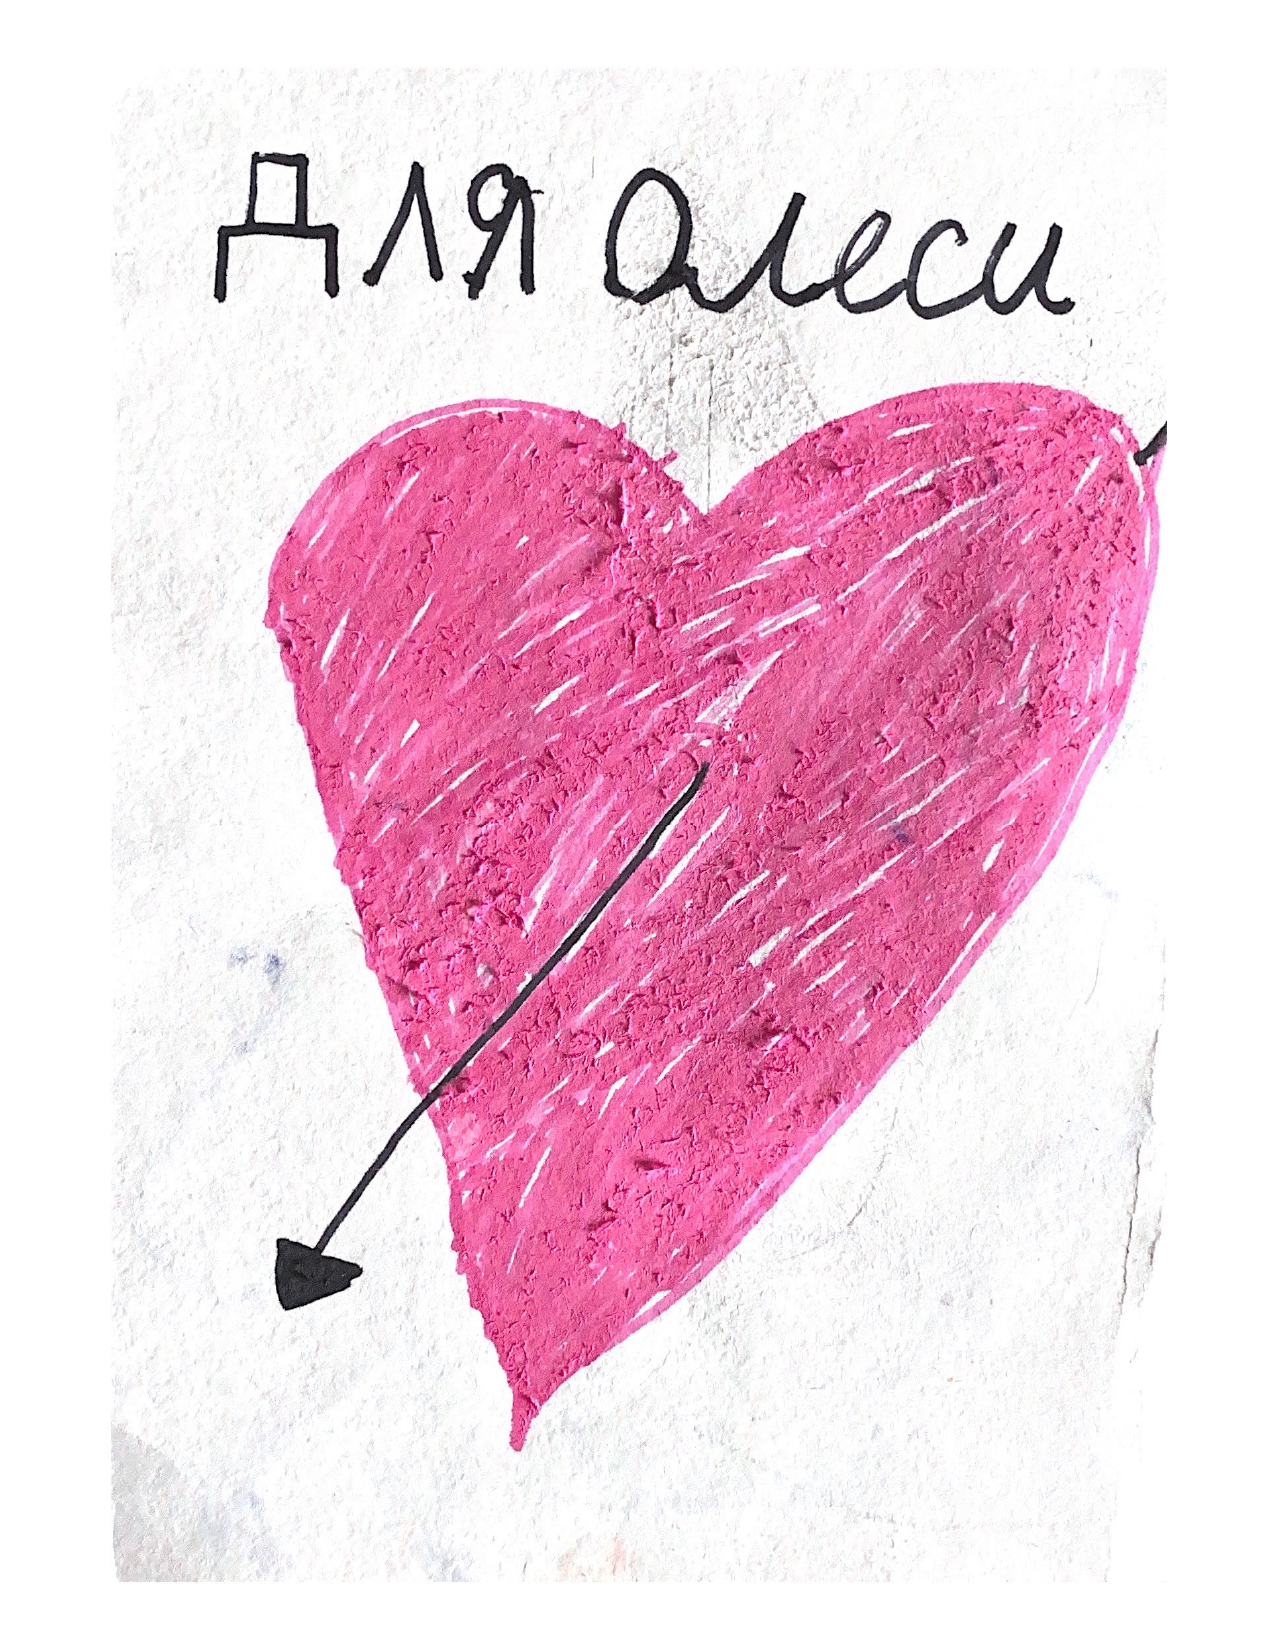 Для Олеси